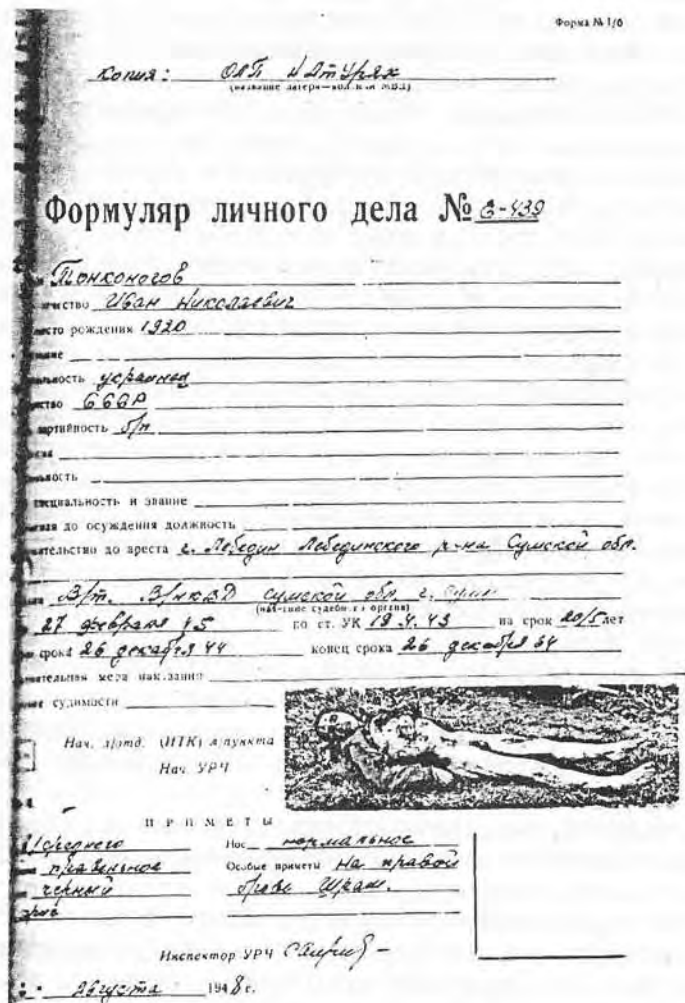 Форма № 1/6
Копия: ОЛП
(название лагеря—колонии МВД)
Формуляр личного дела № 6-439
Тонконогов
Иван Николаевич
место рождения 1920
украинец
СССР
партийность б/п
специальность и звание
до осуждения должность
до ареста г. Лебедин Лебединского р-на Сумской обл.
В/т. В/НКВД Сумской обл. г. Сумы
(название судебного органа)
27 февраля 45 по ст. УК 19.4.43 на срок 20/5 лет
срока 26 декабря 44 конец срока 26 декабря 64
мера наказания
судимости
Нач. л/отд. (ИТК) л/пункта
Нач. УРЧ
ПРИМЕТЫ
среднего Нос нормальное
правильное Особые приметы На правой
черный брове Шрам.
Инспектор УРЧ
Августа 1948 г.